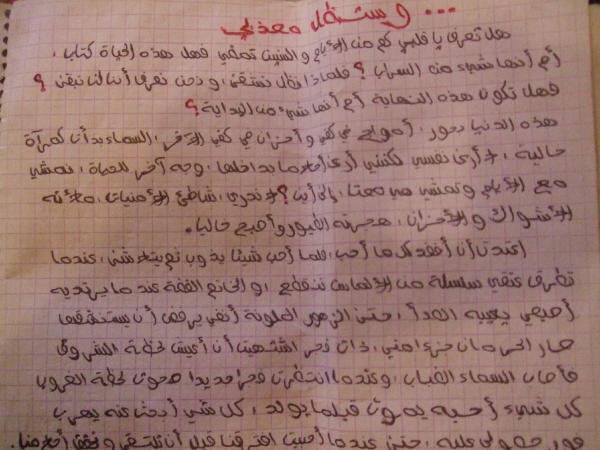 ... وستظل معذبي
هل تعرف يا قلبي كم من الأيام و السنين تمضي فهل هذه الحياة كتاب ،
أم أنها شيء من السراب ؟ فلماذا نظل نشقى ، و نحن نعرف أننا لن نبقى ؟
فهل تكون هذه النهاية أم أنها شيء من البداية ؟
هذه الدنيا بحور ، أمواج في كفي وأحزان هي كفي الآخر ، السماء بدأت كمرآة
خالية ، لا أرى نفسي لكنني أرى أحلاما بداخلها ، وجه آخر للحياة ، نمشي
مع الأيام وتمضي هي معنا ، إلى أين ؟ لا ندري ، شاطئ الأمنيات ، ملأته
الأشواك و الأحزان ، هجرته الطيور و أصبح خاليا .
اعتدت أن أفقد كل ما أحب ، كلما أحب شيئا يذوب ثم يتلاشى ، عندما
تطوق عنقي سلسلة من الألماس تنقطع ، و الخاتم الفضة عندما يرتديه
أصبعي يصيبه الصدأ ، حتى الزهور الملونة أنفي يرفض أن يستنشقها
صار الحرمان جزء مني ، ذات فجر اشتهيت أن أعيش لحظة الشروق
فأصاب السماء الضباب ، وعندما انتظرت فجرا جديدا صحوت لحظة الغروب
كل شيء أحبه يموت قبلما يولد ، كل شيء أبحث عنه يهرب
فور حصولي عليه ، حتى عندما أحببت افترقنا قبل أن نلتقي و نحقق أحلامنا .